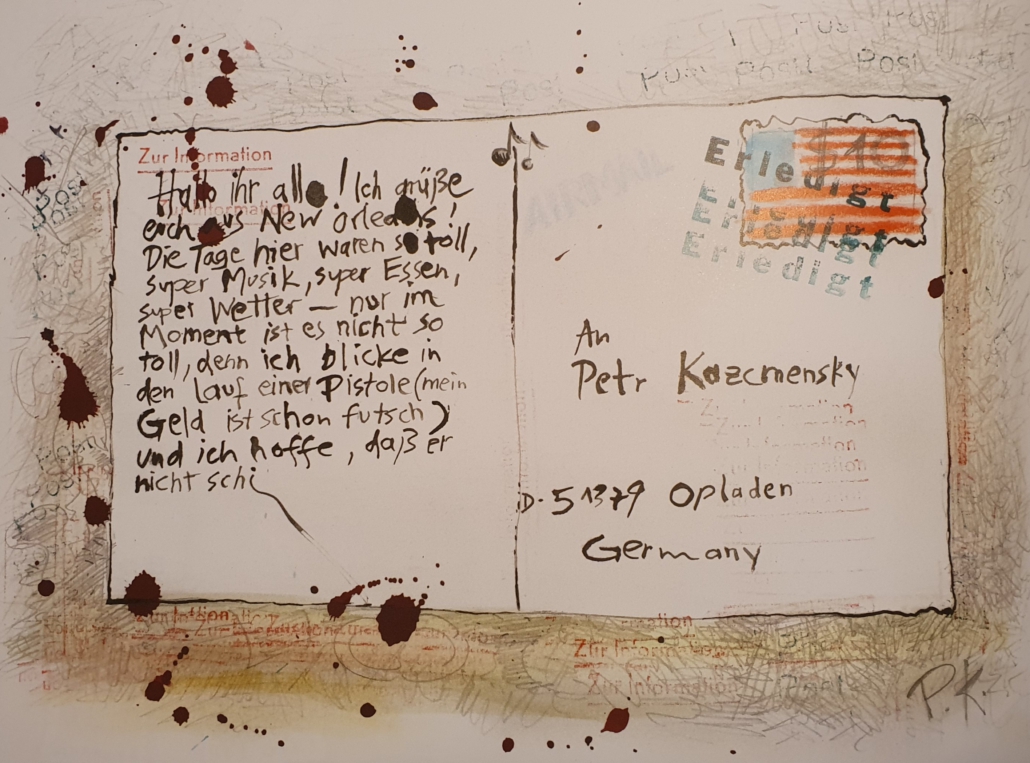 Post Post
Post Post Post
Zur Information
Hallo ihr alle! Ich grüße
euch aus New Orleans!
Die Tage hier waren so toll,
super Musik, super Essen,
super Wetter – nur im
Moment ist es nicht so
toll, denn ich blicke in
den Lauf einer Pistole (mein
Geld ist schon futsch)
und ich hoffe, daß er
nicht schi
$10
Erledigt
Erledigt
Erledigt
Erledigt
An
Petr Kazcmensky
Zur Information
Zur Information
Zur Information
D-51379 Opladen
Germany
Zur Information
Zur Information
P.K.